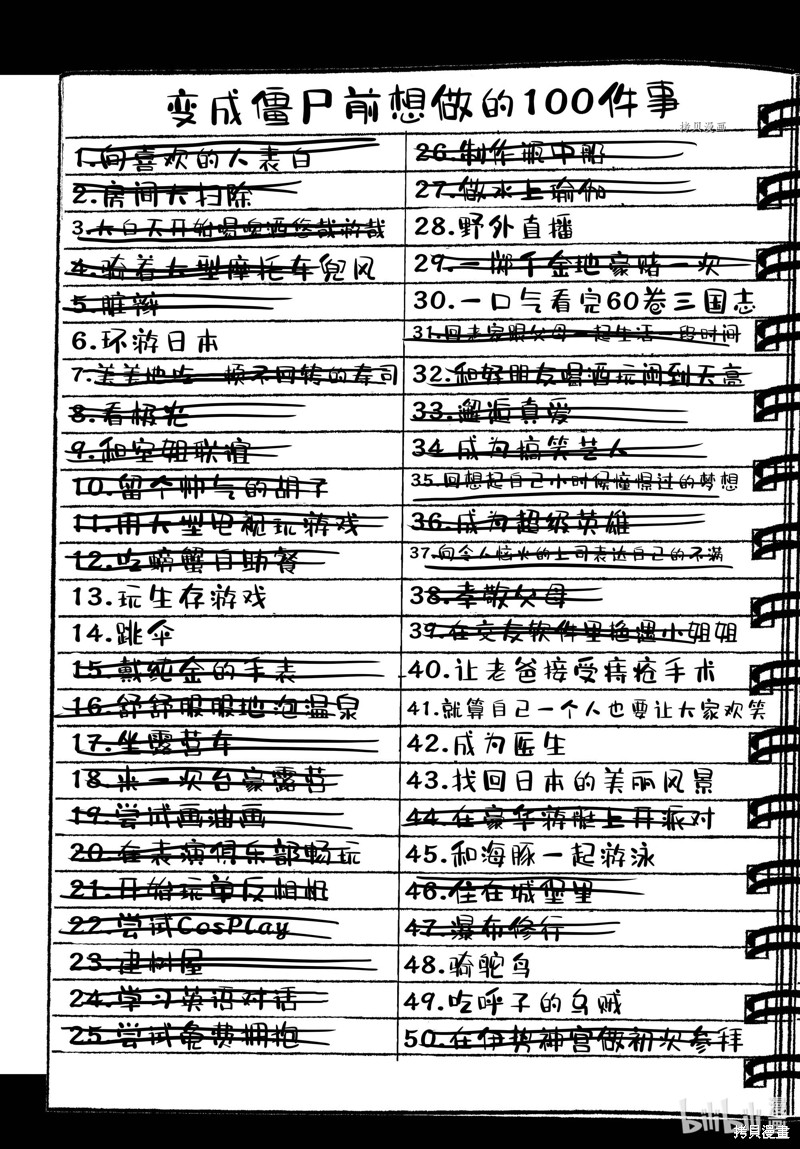 变成僵尸前想做的100件事
拷贝漫画
1.向喜欢的人表白
2.房间大扫除
3.大白天开始喝啤酒悠哉游哉
4.骑着大型摩托车兜风
5.脏辫
6.环游日本
7.美美地吃一顿不回转的寿司
8.看极光
9.和空姐联谊
10.留个帅气的胡子
11.用大型电视玩游戏
12.吃螃蟹自助餐
13.玩生存游戏
14.跳伞
15.戴纯金的手表
16.舒舒服服地泡温泉
17.坐露营车
18.来一次台豪露营
19.尝试画油画
20.在表演俱乐部畅玩
21.开始玩单反相机
22.尝试CosPlay
23.建树屋
24.学习英语对话
25.尝试免费拥抱
26.制作瓶中船
27.做水上瑜伽
28.野外直播
29.一掷千金地豪赌一次
30.一口气看完60卷三国志
31.回老家跟父母一起生活一段时间
32.和好朋友喝酒玩闹到天亮
33.邂逅真爱
34.成为搞笑艺人
35.回想起自己小时候憧憬过的梦想
36.成为超级英雄
37.向令人恼火的上司表达自己的不满
38.孝敬父母
39.在交友软件里拖遇小姐姐
40.让老爸接受痔疮手术
41.就算自己一个人也要让大家欢笑
42.成为医生
43.找回日本的美丽风景
44.在豪华游艇上开派对
45.和海豚一起游泳
46.住在城堡里
47.瀑布修行
48.骑鸵鸟
49.吃呼子的乌贼
50.在伊势神宫做初次参拜
bilibili
拷贝漫画